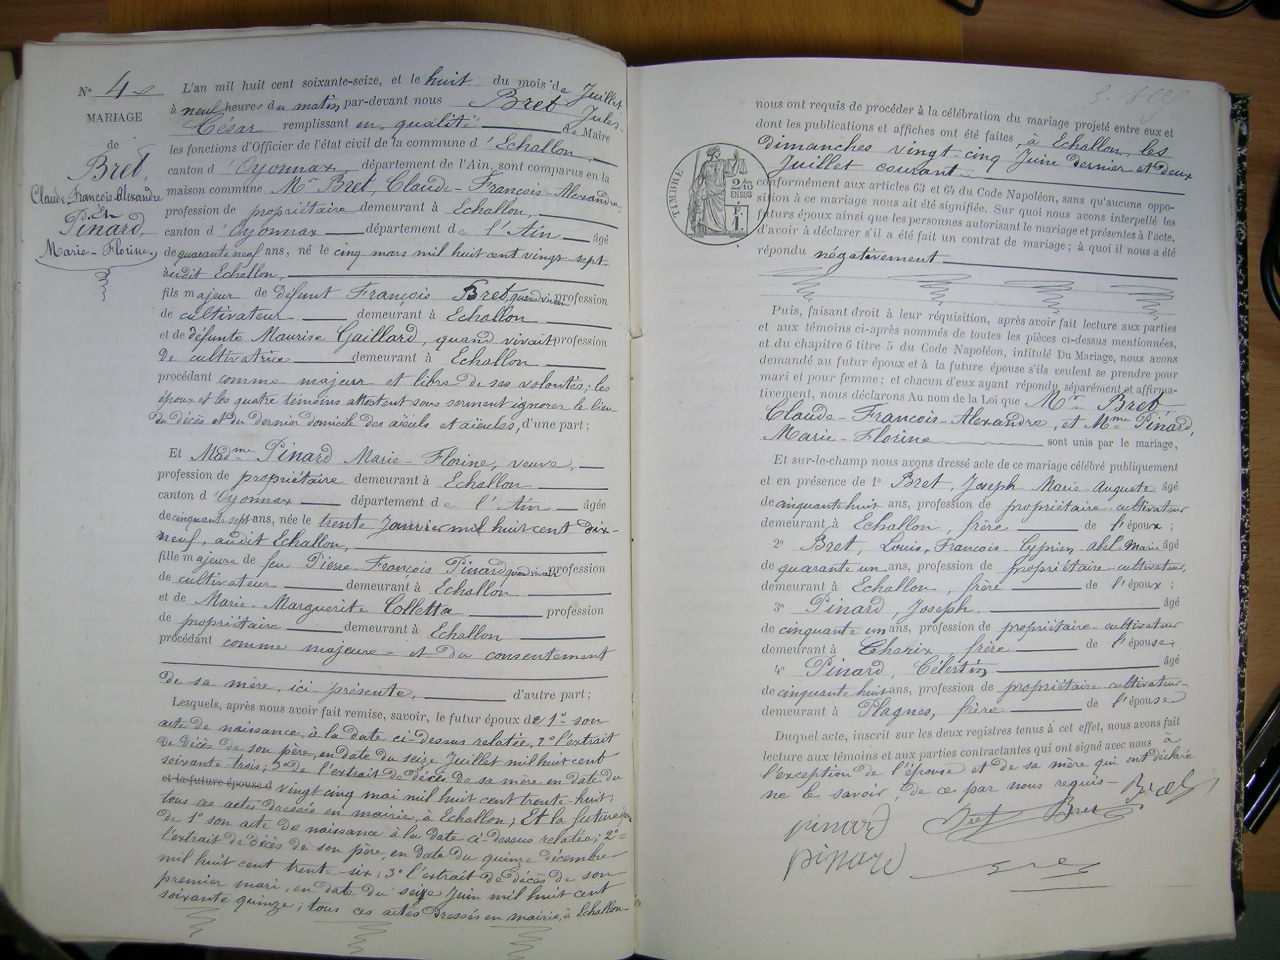 N° 4
MARIAGE
de
Bret,
Claude-François-Alexandre
En
Pinard,
Marie-Florine,
L'an mil huit cent soixante-seize, et le huit du mois de Juillet
à neuf heures du matin par-devant nous Bret Jules
César remplissant en qualité de Maire
les fonctions d'Officier de l'état civil de la commune d'Echallon,
canton d'Oyonnax, département de l'Ain, sont comparus en la
maison commune Mr Bret, Claude-François-Alexandre,
profession de propriétaire demeurant à Echallon,
canton d'Oyonnax département de l'Ain âgé
de quarante neuf ans, né le cinq mars mil huit cent vingt-sept
audit Echallon,
fils majeur de défunt François Bret, quand vivait profession
de cultivateur demeurant à Echallon
et de défunte Maurise Gaillard, quand vivait profession
de cultivatrice demeurant à Echallon
procédant comme majeur et libre de ses volontés; les
époux et les quatre témoins attestent sous serment ignorer le lieu
du décès et du dernier domicile des aïeuls et aïeules, d'une part;
Et Madme Pinard Marie-Florine, veuve,
profession de propriétaire demeurant à Echallon
canton d'Oyonnax département de l'Ain âgée
de cinquante sept ans, née le trente Janvier mil huit cent dix-
neuf, audit Echallon,
fille majeure de feu Pierre-François Pinard quand vivait profession
de cultivateur demeurant à Echallon
et de Marie-Marguerite Colletta profession
de propriétaire demeurant à Echallon
procédant comme majeure et du consentement
de sa mère, ici présente, d'autre part;
Lesquels, après nous avoir fait remise, savoir, le futur époux de 1° son
acte de naissance, à la date ci-dessus relatée, 2° l'extrait
de décès de son père, en date du seize Juillet mil huit cent
soixante trois; 3° de l'extrait de décès de sa mère en date du
et la future épouse d vingt cinq mai mil huit cent trente-huit;
tous ces actes dressés en mairie, à Echallon; Et la future
de 1° son acte de naissance à la date ci-dessus relatée; 2°
l'extrait de décès de son père, en date du quinze décembre
mil huit cent trente-six; 3° l'extrait de décès de son
premier mari, en date du seize Juin mil huit cent
soixante quinze; tous ces actes dressés en mairie, à Echallon
nous ont requis de procéder à la célébration du mariage projeté entre eux et
dont les publications et affiches ont été faites, à Echallon, les
dimanches vingt-cinq Juin dernier et deux
Juillet courant
conformément aux articles 63 et 64 du Code Napoléon, sans qu'aucune oppo-
sition à ce mariage nous ait été signifiée. Sur quoi nous avons interpellé les
futurs époux ainsi que les personnes autorisant le mariage et présentes à l'acte,
d'avoir à déclarer s'il a été fait un contrat de mariage; à quoi il nous a été
répondu négativement
TIMBRE
2/10
EN SUS
F.
1
Puis, faisant droit à leur réquisition, après avoir fait lecture aux parties
et aux témoins ci-après nommés de toutes les pièces ci-dessus mentionnées,
et du chapitre 6 titre 5 du Code Napoléon, intitulé Du Mariage, nous avons
demandé au futur époux et à la future épouse s'ils veulent se prendre pour
mari et pour femme; et chacun d'eux ayant répondu séparément et affirma-
tivement, nous déclarons Au nom de la Loi que Mr Bret
Claude-François-Alexandre, et Mme Pinard,
Marie-Florine sont unis par le mariage,
Et sur-le-champ nous avons dressé acte de ce mariage célébré publiquement
et en présence de 1° Bret, Joseph Marie Auguste âgé
de cinquante huit ans, profession de propriétaire cultivateur
demeurant à Echallon, frère de l'époux;
2° Bret, Louis, François-Cyprien Abel Marie âgé
de quarante un ans, profession de propriétaire-cultivateur
demeurant à Echallon, frère de l'époux;
3° Pinard, Joseph âgé
de cinquante un ans, profession de propriétaire-cultivateur
demeurant à Charix, frère de l'épouse,
4° Pinard, Célestin âgé
de cinquante huit ans, profession de propriétaire cultivateur
demeurant à Plagnes, frère de l'épouse
Duquel acte, inscrit sur les deux registres tenus à cet effet, nous avons fait
lecture aux témoins et aux parties contractantes qui ont signé avec nous à
l'exception de l'épouse et de sa mère qui ont déclaré
ne le savoir, de ce par nous requis
pinard Bret Bret Bret
pinard